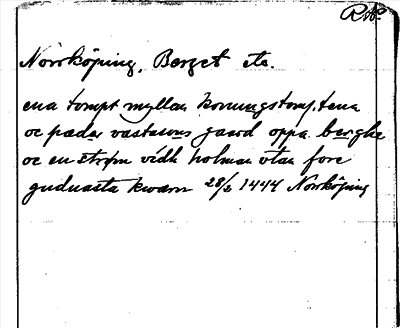 R.A.
Norrköping, Berget etc.
ena tompt myllan konungstomptena
oc pædar vastasons gaard oppa berghe
oc en strøm vidh holman vtan fore
gudnasta kwarn 28/2 1444 Norrköping